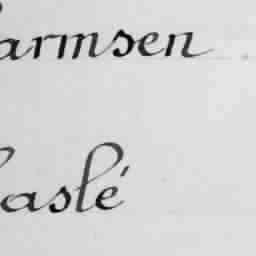 armsen
aslé